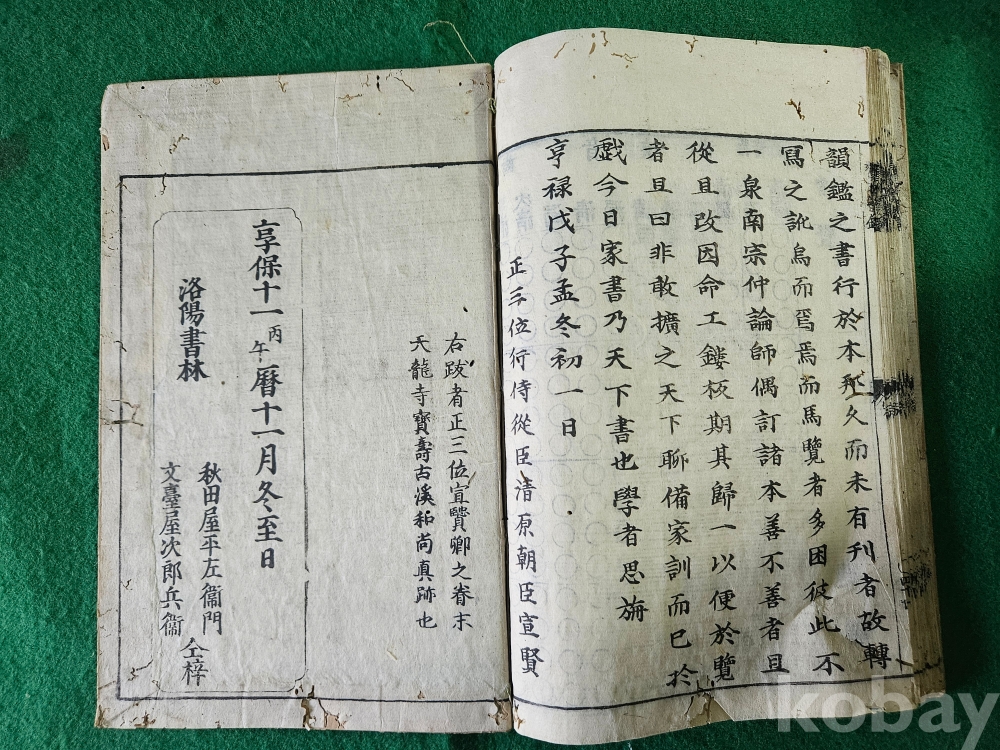 韻鑑之書行於本邦久而未有刊者故轉
寫之訛烏而焉焉而馬覽者多困彼此不
一泉南宗仲論師偶訂諸本善不善者且
從且改因命工鏤板期其歸一以便於覽
者且曰非敢擴之天下聊備家訓而已於
戲今日家書乃天下書也學者思旃
享祿戊子孟冬初一日
正三位行侍從臣清原朝臣宣賢
右跋者正三位宣賢卿之眷末
天龍寺寶壽古溪和尚真跡也
享保十一丙午曆十一月冬至日
洛陽書林
秋田屋平左衞門
文臺屋次郎兵衞
仝梓
kobay